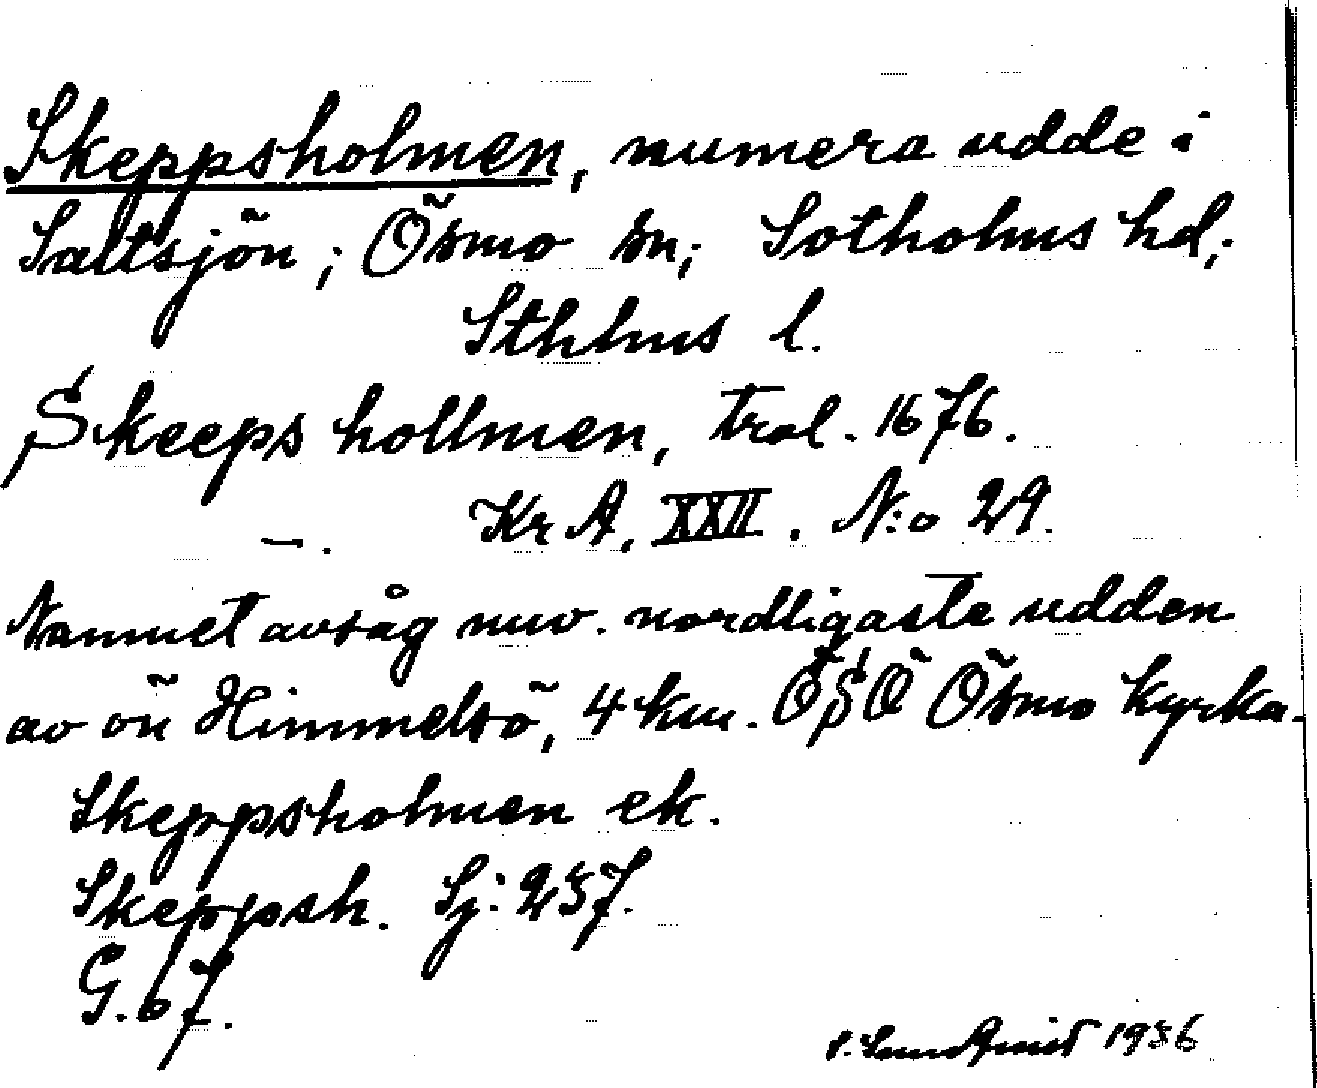 Skeppsholmen, numera udde i
Saltsjön; Ösmo sn; Sotholms hd;
Sthlms l.
Skeeps hollmen, trol. 1676.
–. Kr A. XXII. N:o 29.
Namnet avsåg nuv. nordligaste udden
av ön Himmelsö, 4 km. ÖSÖ Ösmo kyrka.
Skeppsholmen ek.
Skeppsh. Sj: 237.
G. 67.
S. Sundquist 1936